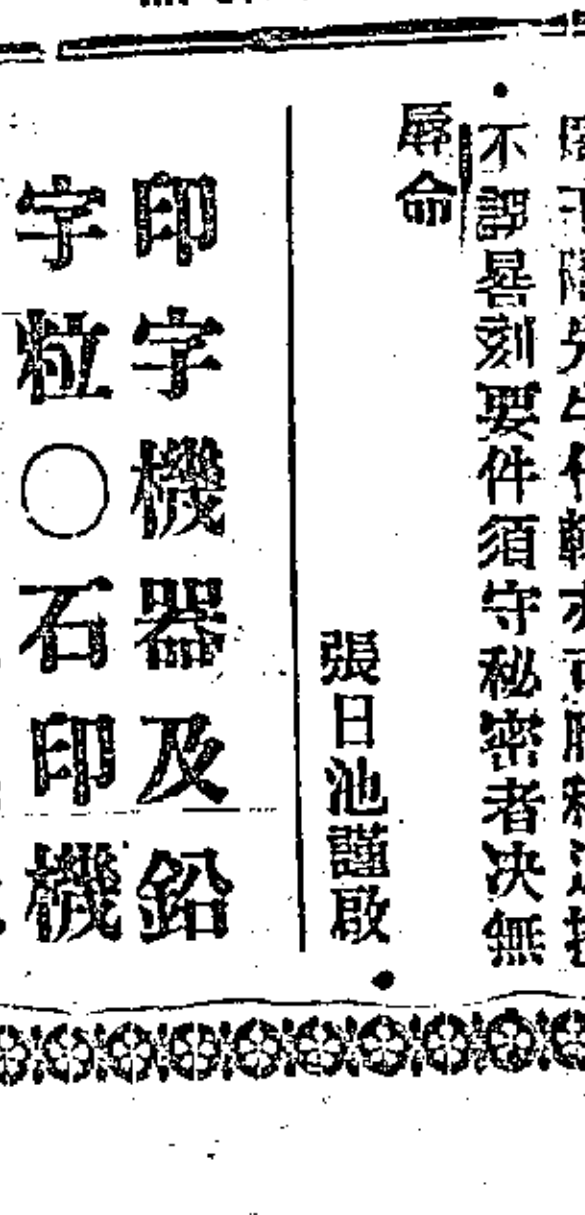 不誤晷刻要件須守秘密者决無
辱命
張日池謹啟
印字機器及鉛
字粒〇石印機